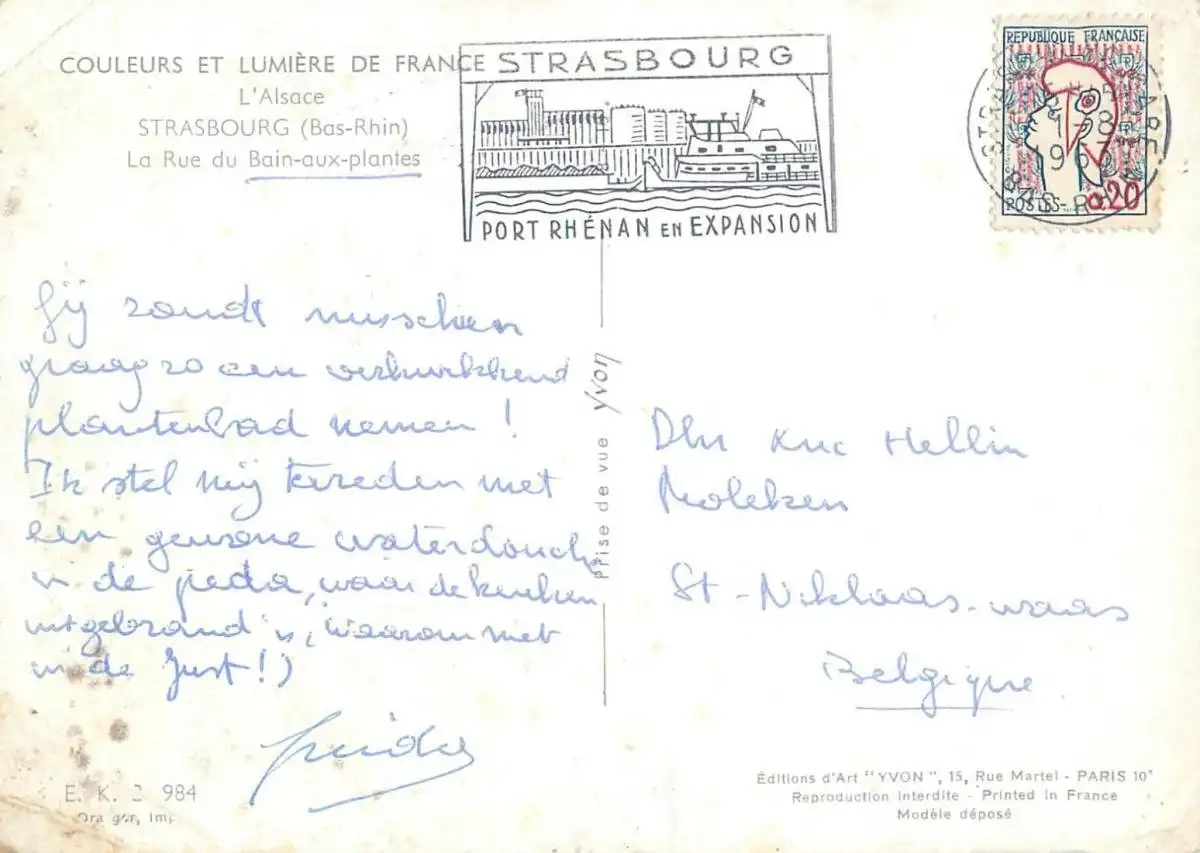 COULEURS ET LUMIÈRE DE FRANCE
L'Alsace
STRASBOURG (Bas-Rhin)
La Rue du Bain-aux-plantes
STRASBOURG
PORT RHÉNAN EN EXPANSION
REPUBLIQUE FRANÇAISE
POSTES 0,20
Gij zoudt misschien
graag zo een verkwikkend
plantenbad nemen!
Ik stel mij tevreden met
een gewone waterdouche
in de peda, waar de keuken
uitgebrand is, (waarom niet
in de Just!)
Guido
Prise de vue Yvon
Dhr Hellin
Moleken
St-Niklaas-waas
Belgique
E. K. 984
Editions d'Art "YVON", 15, Rue Martel - PARIS 10e
Reproduction interdite - Printed in France
Modèle déposé